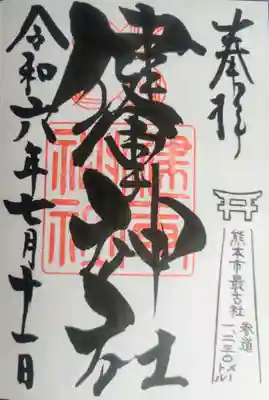 奉拝
熊本市最古社
参道
一、二三〇メートル
健軍神社
令和六年七月十一日